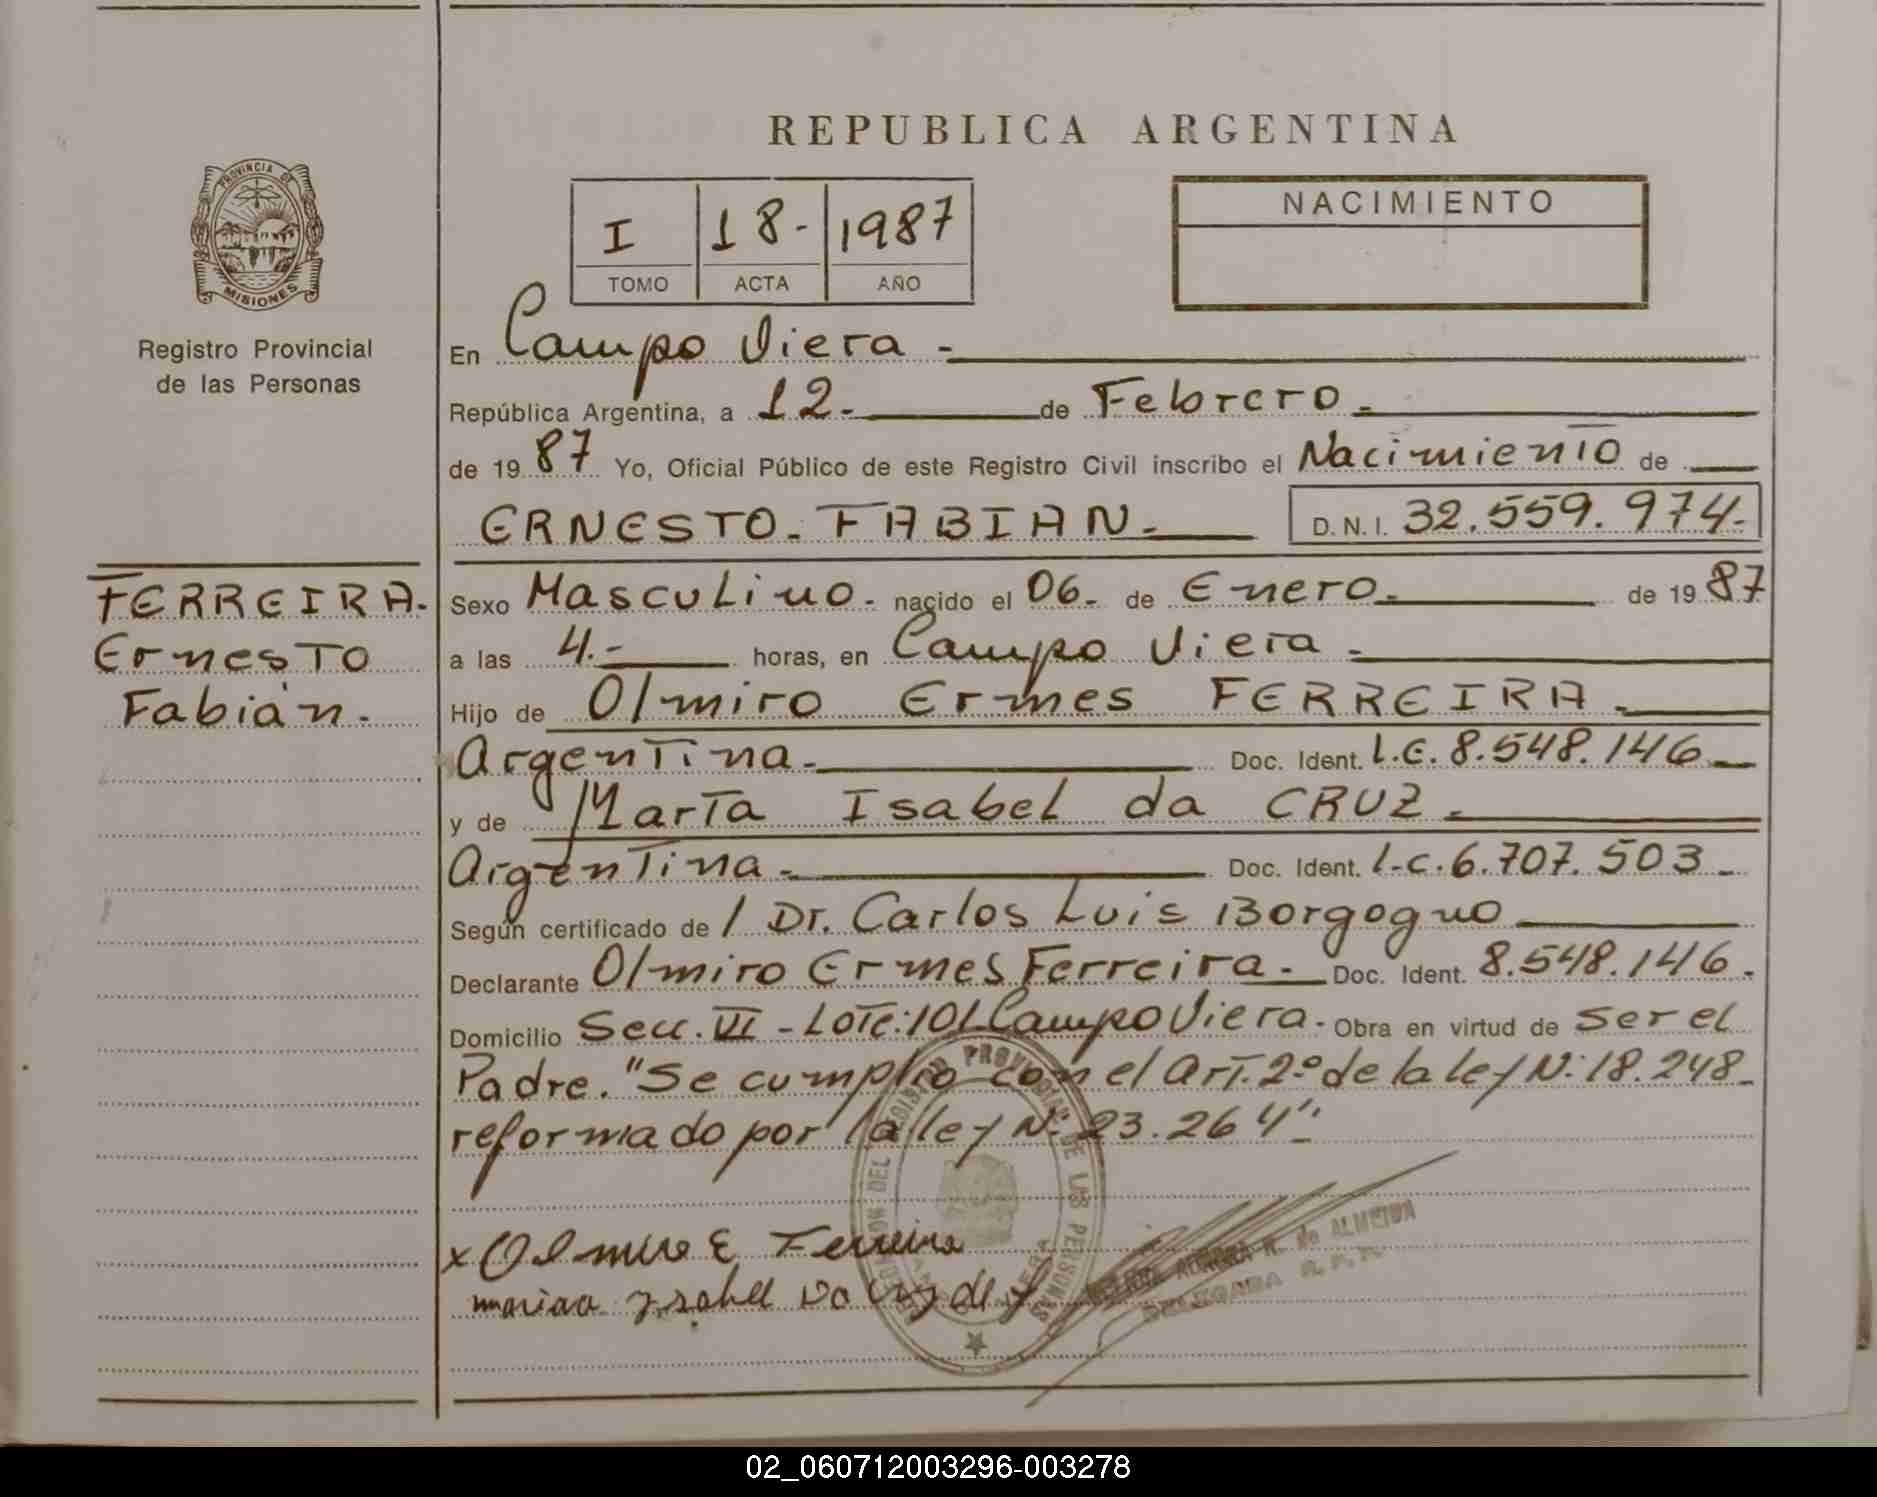 REPUBLICA ARGENTINA
PROVINCIA DE
MISIONES
Registro Provincial
de las Personas
I 18- 1987
TOMO ACTA AÑO
NACIMIENTO
En Campo Viera -
República Argentina, a 12.- de Febrero.-
de 19 87 Yo, Oficial Público de este Registro Civil inscribo el Nacimiento de
ERNESTO. FABIAN.- D.N.I. 32.559.974.-
FERREIRA.
Ernesto
Fabián.
Sexo Masculino.- nacido el 06.- de Enero.- de 19 87
a las 4.- horas, en Campo Viera.-
Hijo de Olmiro Ermes FERREIRA.-
Argentina.- Doc. Ident. L.E. 8.548.146-
y de Marta Isabel da CRUZ.-
Argentina.- Doc. Ident. L.C. 6.707.503-
Según certificado de / Dr. Carlos Luis Borgogno
Declarante Olmiro Ermes Ferreira.- Doc. Ident. 8.548.146.
Domicilio Secc. VII - Lote: 101 Campo Viera.- Obra en virtud de ser el
Padre. "Se cumplió con el Art. 2º de la ley Nº: 18.248-
reformado por la ley Nº 23.264".-
x Olmiro E Ferreira
DE LAS PERSONAS
DE ALMEIDA
DELEGADA R. P. P.
02_060712003296-003278